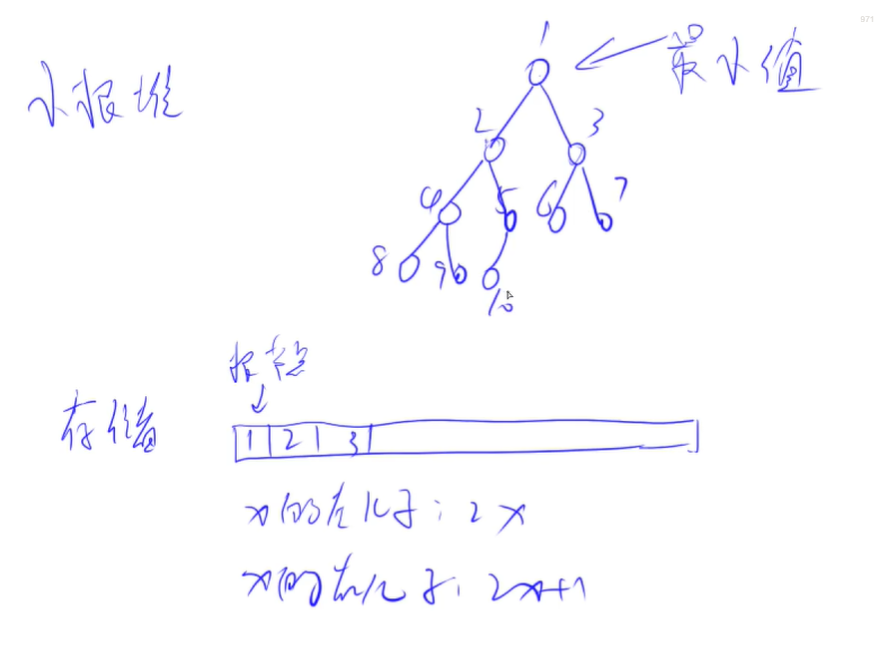 971
小根堆
最小值
1
2 3
4 5 6 7
8 9 10
根节点
存储
1 2 3
x的左儿子: 2x
x的右儿子: 2x+1